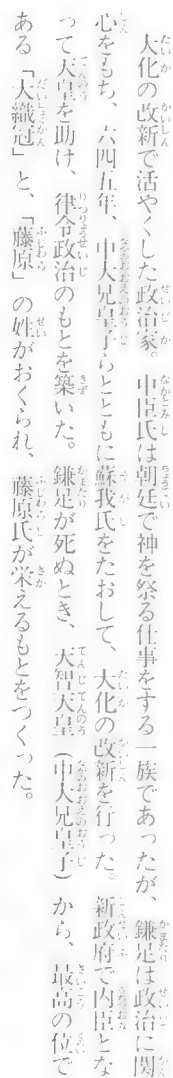 大化の改新で活やくした政治家。中臣氏は朝廷で神を祭る仕事をする一族であったが、鎌足は政治に関
心をもち、六四五年、中大兄皇子らとともに蘇我氏をたおして、大化の改新を行った。新政府で内臣とな
って天皇を助け、律令政治のもとを築いた。鎌足が死ぬとき、天智天皇（中大兄皇子）から、最高の位で
ある「大織冠」と、「藤原」の姓がおくられ、藤原氏が栄えるもとをつくった。